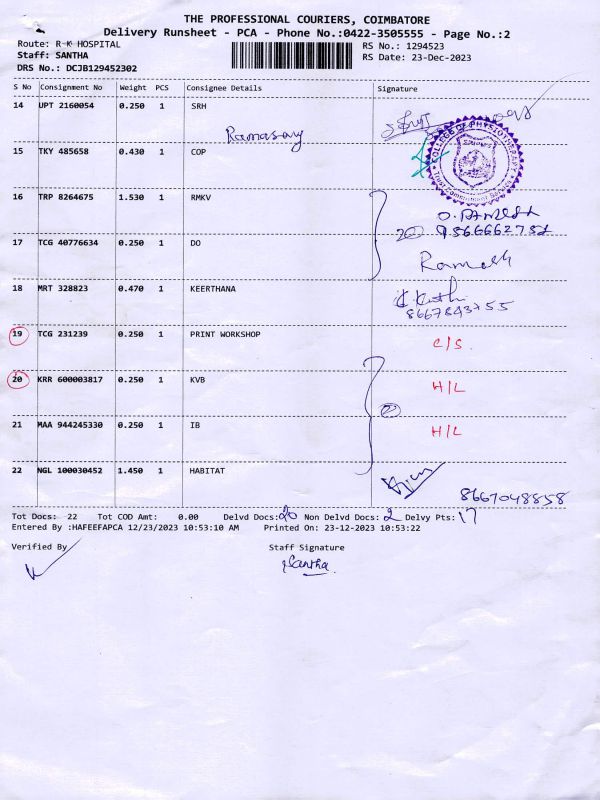 THE PROFESSIONAL COURIERS, COIMBATORE
Delivery Runsheet - PCA - Phone No.:0422-3505555 - Page No.:2
Route: R-K HOSPITAL
RS No.: 1294523
Staff: SANTHA
RS Date: 23-Dec-2023
DRS No.: DCJB129452302
S No Consignment No Weight PCS Consignee Details Signature
14 UPT 2160054 0.250 1 SRH
Ramasamy
15 TKY 485658 0.430 1 COP
COLLEGE OF PHYSIOTHERAPY
16 TRP 8264675 1.530 1 RMKV
O. RAMESH
9566662752
17 TCG 40776634 0.250 1 DO
Ramesh
18 MRT 328823 0.470 1 KEERTHANA
8667843755
19 TCG 231239 0.250 1 PRINT WORKSHOP C/S.
20 KRR 600003817 0.250 1 KVB H/L
21 MAA 944245330 0.250 1 IB H/L
22 NGL 100030452 1.450 1 HABITAT
8667048858
Tot Docs: 22 Tot COD Amt: 0.00 Delvd Docs: 20 Non Delvd Docs: 2 Delvy Pts: 17
Entered By :HAFEEFAPCA 12/23/2023 10:53:10 AM Printed On: 23-12-2023 10:53:22
Verified By Staff Signature
Santha